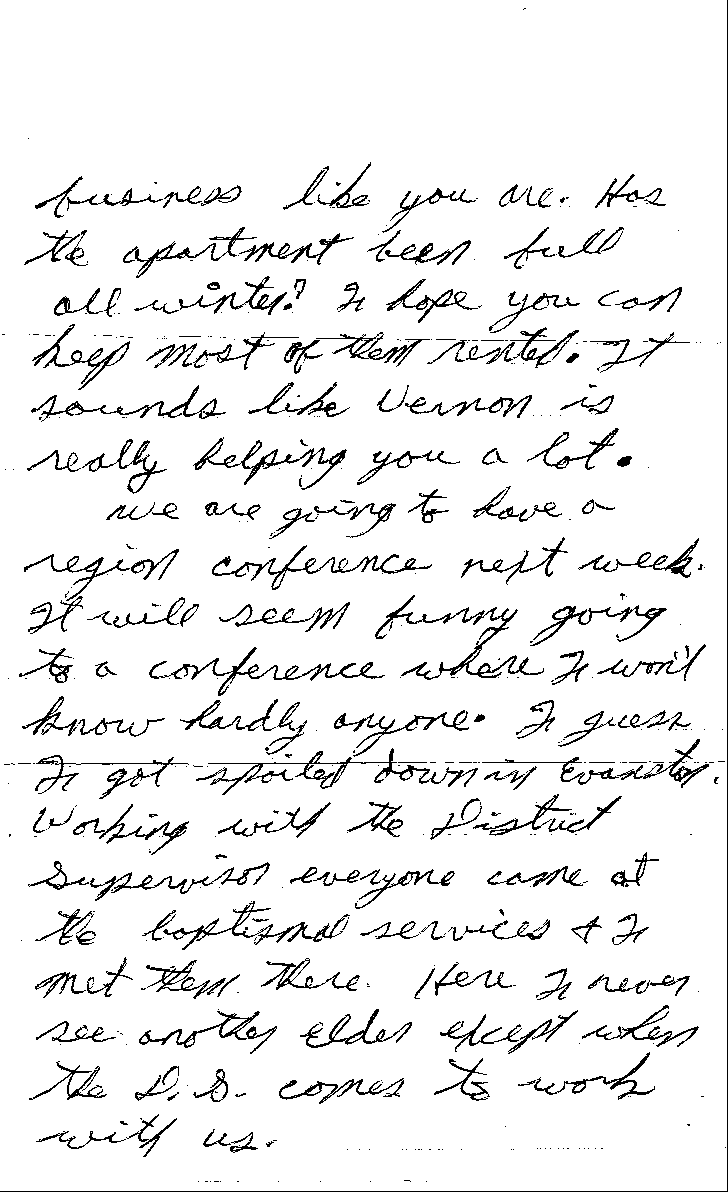 business like you are. Has
the apartment been full
all winter? I hope you can
keep most of them rented. It
sounds like Vernon is
really helping you a lot.
We are going to have a
region conference next week.
It will seem funny going
to a conference where I won't
know hardly anyone. I guess
I got spoiled down in Evanston.
Working with the District
Supervisor everyone came at
the baptismal services & I
met them there. Here I never
see another elder except when
the D.S. comes to work
with us.